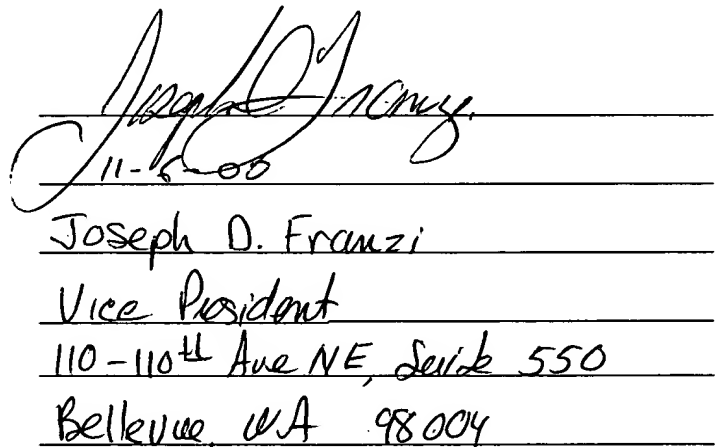 Joseph D Franzi
11-6-00
Joseph D. Franzi
Vice President
110-110th Ave NE, Suite 550
Bellevue, WA 98004